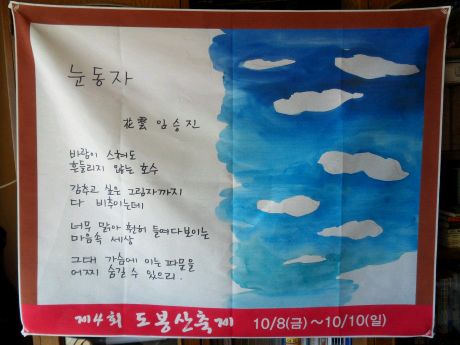 눈동자
花雲 임승진
바람이 스쳐도
흔들리지 않는 호수
감추고 싶은 그림자까지
다 비추이는데
너무 맑아 훤히 들여다보이는
마음속 세상
그대 가슴에 이는 파문을
어찌 숨길 수 있으리.
제4회 도봉산축제 10/8(금)~10/10(일)